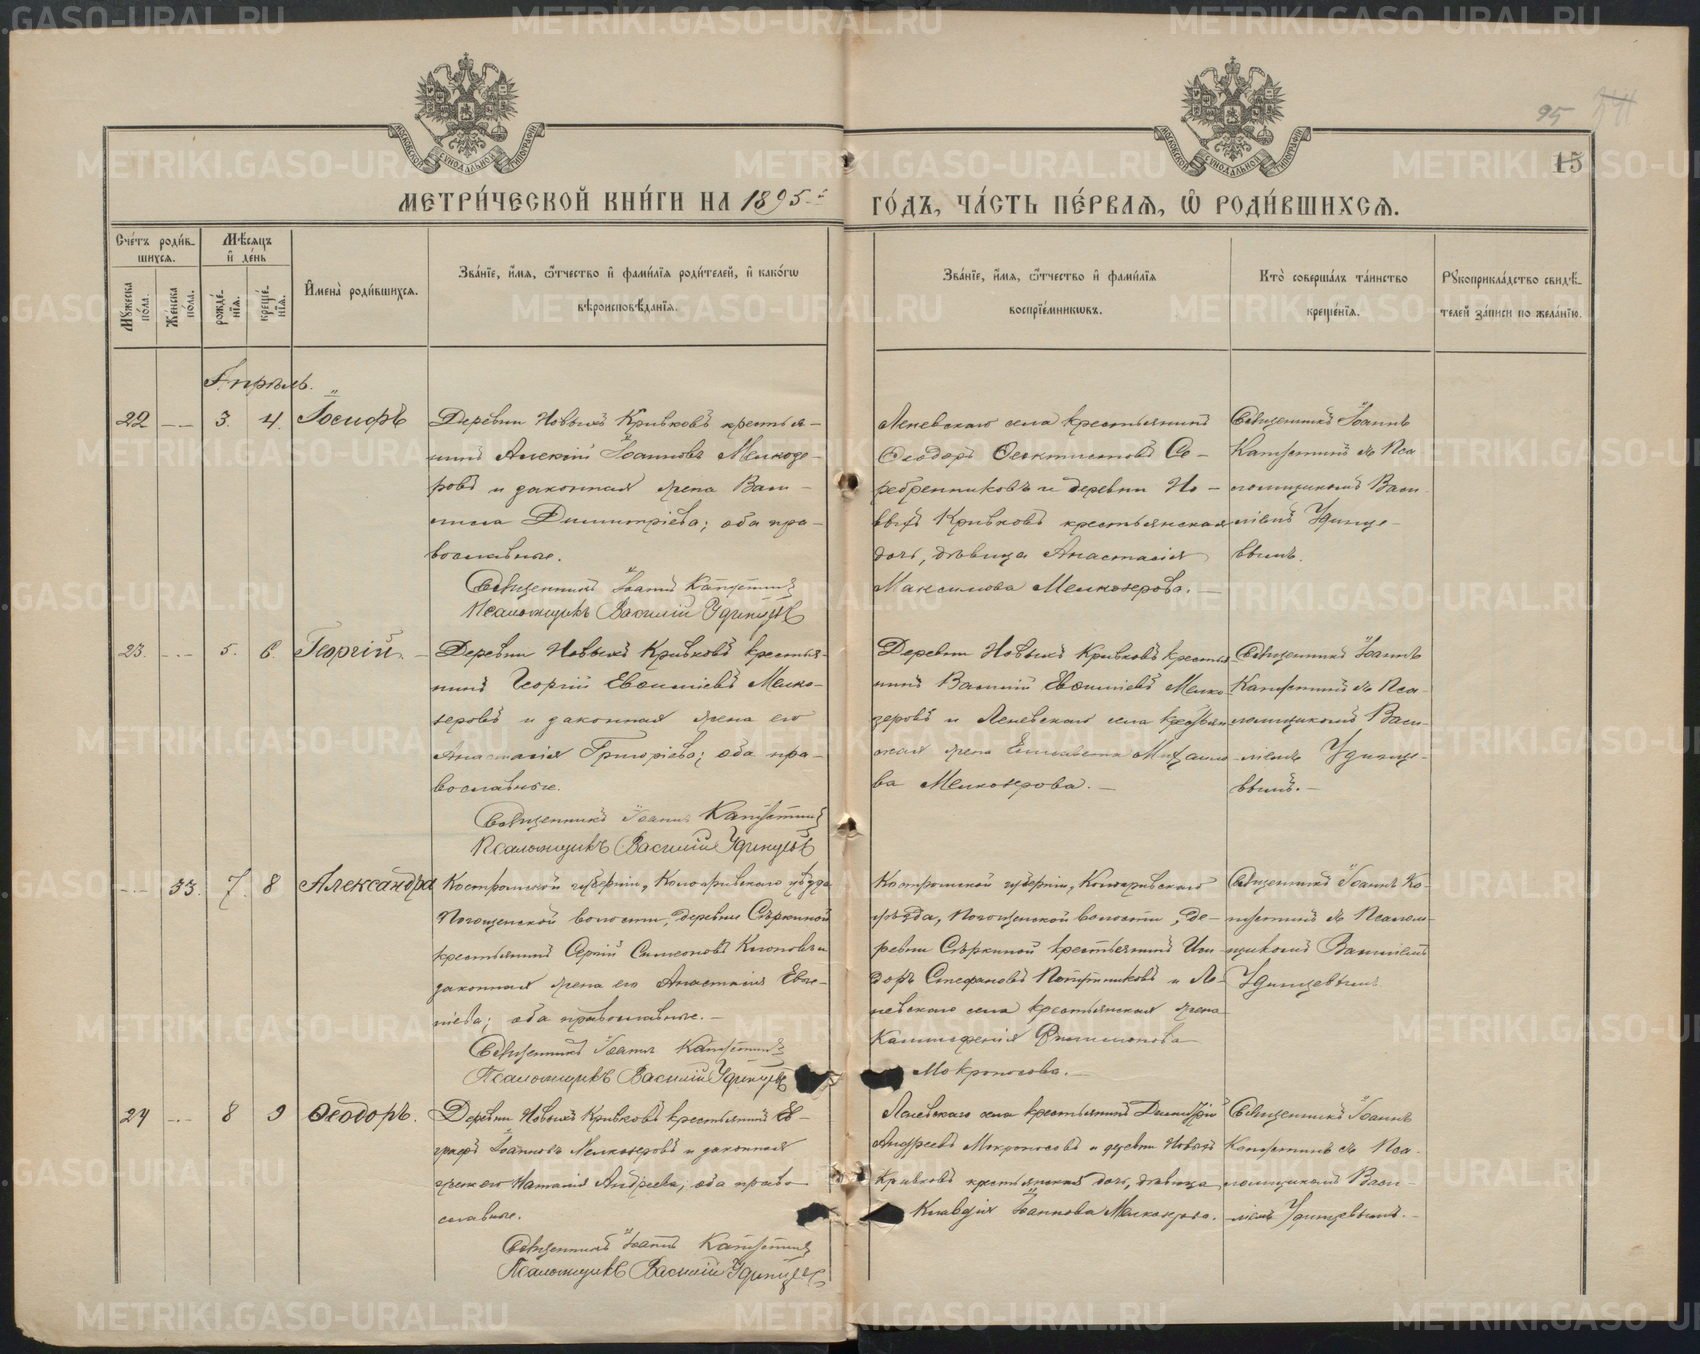 95
15
МЕТРИ́ЧЕСКОЙ КНИ́ГИ НА 1895-й ГО́ДЪ, ЧА́СТЬ ПЕ́РВАѦ, Ѡ҆ РОДИ́ВШИХСѦ.
Сче́тъ роди́в-
шихсѧ.
Мꙋ́жеска по́ла.
Же́нска по́ла.
Мѣ́сѧцъ и҆ де́нь
рожде́-
нїѧ.
креще́-
нїѧ.
И҆мена̀ роди́вшихсѧ.
Зва́нїе, и҆́мѧ, ѻ҆́тчество и҆ фами́лїѧ роди́телей, и҆ како́гѡ
вѣроисповѣ́данїѧ.
Зва́нїе, и҆́мѧ, ѻ҆́тчество и҆ фами́лїѧ
воспрїе́мникѡвъ.
Кто̀ соверша́лъ та́инство
креще́нїѧ.
Рꙋкоприкла́дство свидѣ́-
телей за́писи по жела́нїю.
Апрѣль.
22 -- 3. 4. Іосифъ
Деревни Новыхъ Кривковъ крестья-
нинъ Алексій Іоанновъ Мелкозе-
ровъ и законная жена Васи-
лисса Димитріева; оба пра-
вославные.
Священникъ Іоаннъ
Псаломщикъ Василій Удинцевъ
Леневскаго села крестьянинъ
Ѳеодоръ Ѳеоктистовъ Се-
ребренниковъ и деревни Но-
выхъ Кривковъ крестьянская
дочь, дѣвица Анастасія
Максимова Мелкозерова. —
Священникъ Іоаннъ
съ Пса-
ломщикомъ Васи-
ліемъ Удинце-
вымъ.
23. -- 5. 6. Георгій. —
Деревни Новыхъ Кривковъ крестья-
нинъ Георгій Евѳиміевъ Мелко-
зеровъ и законная жена его
Анастасія Григоріева; оба пра-
вославные.
Священникъ Іоаннъ
Псаломщикъ Василій Удинцевъ
Деревни Новыхъ Кривковъ крестья-
нинъ Василій Евѳиміевъ Мелко-
зеровъ и Леневскаго села крестьян-
ская жена Елисавета Михаило-
ва Мелкозерова. —
Священникъ Іоаннъ
съ Пса-
ломщикомъ Васи-
ліемъ Удинце-
вымъ. —
-- 33. 7. 8 Александра
Костромской губерніи, Кологривскаго уѣзда,
волости, деревни
крестьянинъ Сергій Симеоновъ и
законная жена его Анастасія Евге-
ніева; оба православные. —
Священникъ Іоаннъ
Псаломщикъ Василій Удинцевъ
Костромской губерніи, Кологривскаго
уѣзда, волости, де-
ревни крестьянинъ Иси-
доръ Стефановъ и Ле-
невскаго села крестьянская жена
Каллисѳенія Филимонова
Мокроносова. —
Священникъ Іоаннъ
съ Псалом-
щикомъ Василіемъ
Удинцевымъ
24 -- 8 9 Ѳеодоръ.
Деревни Новыхъ Кривковъ крестьянинъ Ев-
графъ Іоанновъ Мелкозеровъ и законная
жена его Наталія Андреева; оба право-
славные.
Священникъ Іоаннъ
Псаломщикъ Василій Удинцевъ
Леневскаго села крестьянинъ Димитрій
Андреевъ Мокроносовъ и деревни Новыхъ
Кривковъ крестьянская дочь, дѣвица
Клавдія Іоаннова Мелкозерова.
Священникъ Іоаннъ
съ Пса-
ломщикомъ Васи-
ліемъ Удинцевымъ. —
METRIKI.GASO-URAL.RU